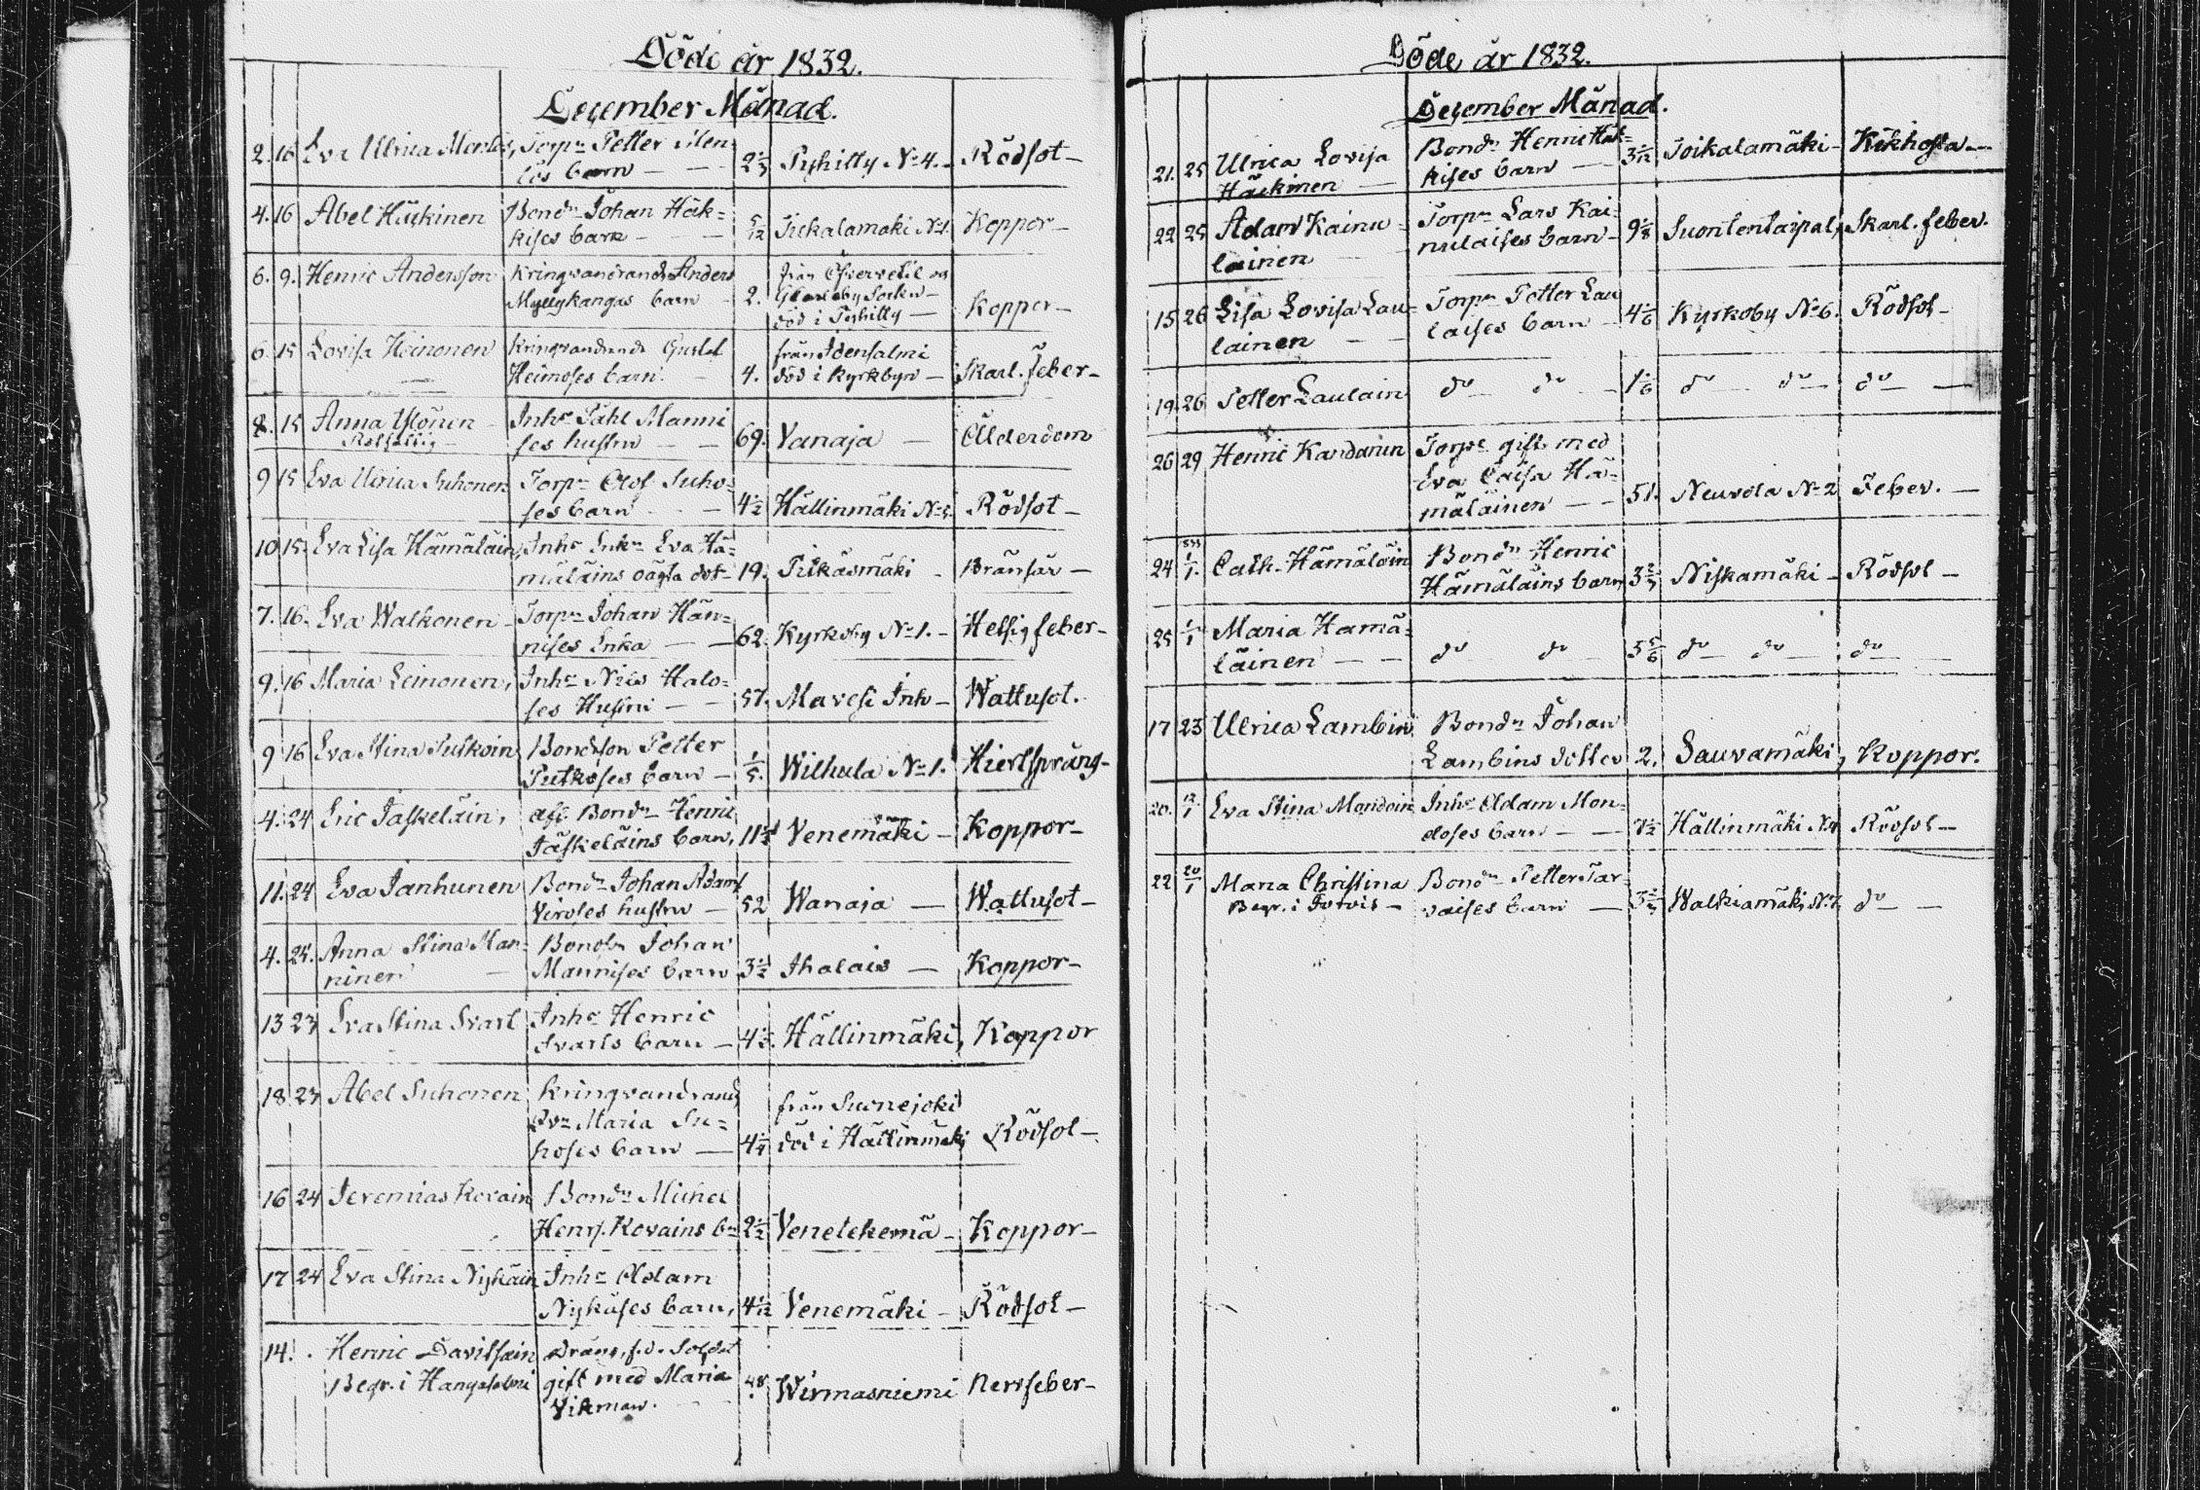 Döde år 1832.
December Månad.
2. 16 Eva Ulrica Torpn Petter Men-
lös barn — 2 2/3 Pyhilty No 4. Rödsot —
4. 16 Abel Häckinen Bondn Johan Häk=
kises barn — 5/12 No 1. Koppor —
6. 9. Henric Andersson Kringvandrande Anders från
Myllykangas barn 2. Socken —
död i Pyhilty — Koppor —
6. 15 Lovisa Heinonen Kringvandrande Gustaf från Idensalmi
Heinoses barn 4. död i Kyrkbyn — Skarl. feber —
8. 15 Anna Ylönen Inhs Påhl Manni
Rotfattig — ses hustru — 69. Vanaja — Ålderdom
9 15 Eva Ulrica Suhonen Torpn Olof Suho=
ses barn — 4 1/2 Hällinmäki Rödsot —
10 15. Eva Lisa Hämäläin, Inhs Enkn Eva Hä=
mäläins oägta dot— 19. Pitkäsmäki Bränsår —
7. 16. Eva Walkonen Torpn Johan Hän=
nises Enka — 62. Kyrkoby No 1. — Hetsig feber —
9. 16 Maria Leinonen, Inhs Nils Halo=
ses Hustru — 57. Mavesi Inh — Wattusot.
9 16 Eva Stina Putkoin Bondeson Petter
Putkoses barn — 1/5. Wilhula No 1. Hiertsprång —
4. 24 Eric Jäskeläin, afl. Bondn Henric
Jäskeläins barn, 11 1/2 Venemäki — Koppor —
11. 24 Eva Janhunen Bondn Johan Adamss
Viroles hustru — 52 Wanaja — Wattusot —
4. 24. Anna Stina Man= Bondsn Johan
ninen — Mannises barn 3 1/2 Ihalais — Koppor —
13 23 Eva Stina Svart Inhs Henric
Svarts barn — 4 1/2. Hällinmäki, Koppor
18 23 Abel Suhonen Kringvandrande från
Qvn Maria Su=
hoses barn — 4 1/4 död i Hällinmäki Rödsot —
16 24 Jeremias Kovain Bondn Michel
Henrs. Kovains bn 2 1/2 Venetekemä — Koppor —
17 24 Eva Stina Nykäin Inhs Adam
Nykäses barn, 4 1/12 Venemäki — Rödsot —
14. Henric Davitsain Dräng, f.d. Soldat
Begr. i Hangasalmi gift med Maria 48. Wirmasniemi Nervfeber —
Vikman.
Döde år 1832.
December Månad.
21. 25 Ulrica Lovisa Bondn Henric Häk=
Häckinen — kises barn — 3 1/12 Toikalamäki — Kikhosta —
22 25 Adam Kainu= Torpn Lars Kai=
lainen nulaises barn — 9 1/8 Suontentaipal, Skarl. feber.
15 26 Lisa Lovisa Lau= Torpn Petter Lau
lainen — laises barn — 4 1/6 Kyrkoby No 6. Rödsot —
19. 26 Petter Laulain do do — 1 1/6 do — do — do —
26 29 Henric Kandanin Torpn gift med
Eva Caisa Hä=
mäläinen — 51. Neuvola No 2 Feber. —
24 1/1. Cath. Hämäläin Bondn Henric
Hämäläins barn 3 2/3 Niskamäki — Rödsot —
25 1/1 Maria Hamä=
läinen — do do — 5 5/6 do — do — do —
17 23 Ulrica Lambin Bondn Johan
Lambins dotter 2. Sauvamäki, Koppor.
20. 13/1 Eva Stina Mondoin Inhs Adam Mon=
doses barn — 7 1/2 Hällinmäki Rödsot —
22 20/1 Maria Christina Bondn Petter Tar=
Begr. i Jotvis — vaises barn — 3 2/3 Walkiamäki do —